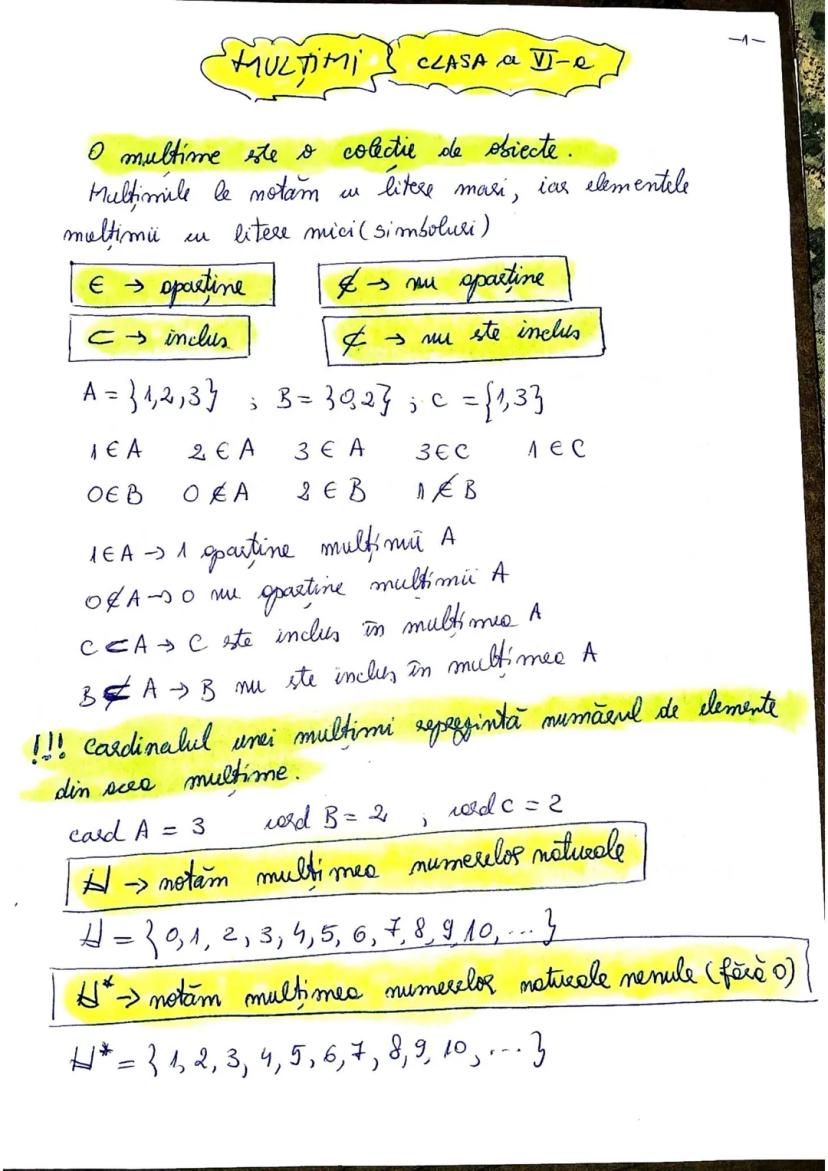 -1-
MULȚIMI CLASA a VI-a
O mulțime este o colecție de obiecte.
Mulțimile le notăm cu litere mari, iar elementele
mulțimii cu litere mici (simboluri)
∈ → aparține ∉ → nu aparține
⊂ → inclus ⊄ → nu este inclus
A = {1,2,3} ; B = {0,2} ; C = {1,3}
1 ∈ A 2 ∈ A 3 ∈ A 3 ∈ C 1 ∈ C
0 ∈ B 0 ∉ A 2 ∈ B 1 ∉ B
1 ∈ A → 1 aparține mulțimii A
0 ∉ A → 0 nu aparține mulțimii A
C ⊂ A → C este inclus în mulțimea A
B ⊄ A → B nu este inclus în mulțimea A
!!! Cardinalul unei mulțimi reprezintă numărul de elemente
din acea mulțime.
card A = 3 card B = 2 ; card C = 2
ℕ → notăm mulțimea numerelor naturale
ℕ = {0,1,2,3,4,5,6,7,8,9,10,...}
ℕ* → notăm mulțimea numerelor naturale nenule (fără 0)
ℕ* = {1,2,3,4,5,6,7,8,9,10,...}